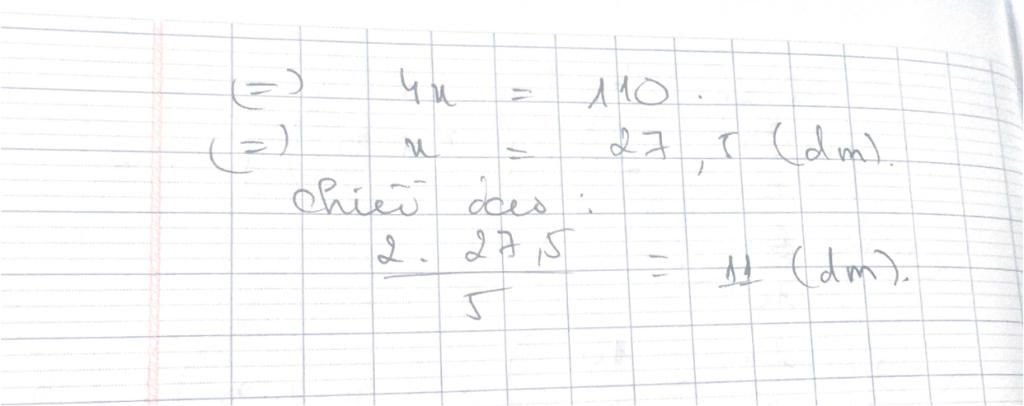 (=) 4x = 110.
(=) x = 27,5 (dm).
Chiều cao :
2. 27,5
5
= 11 (dm).